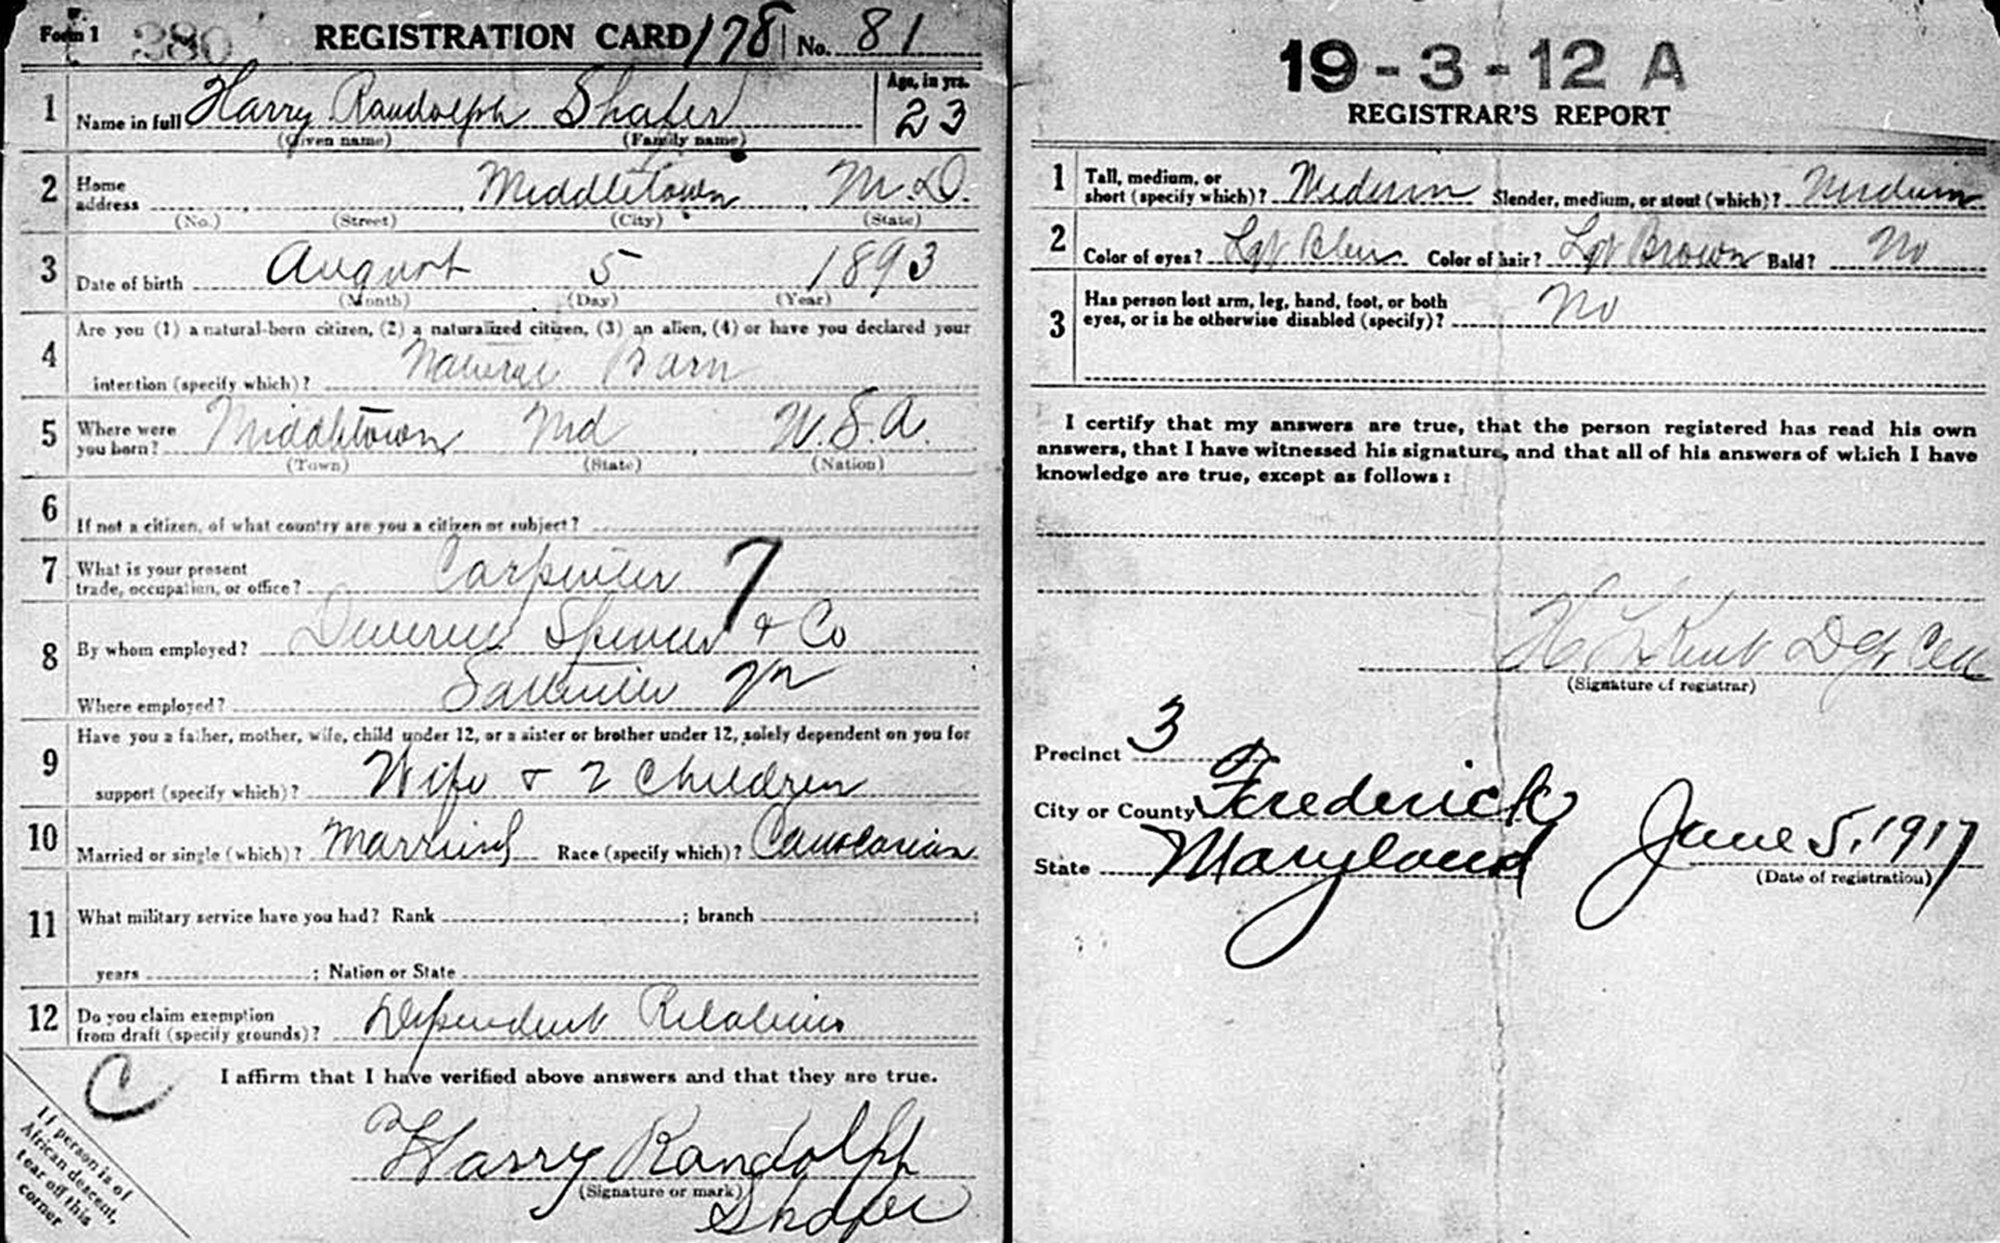 Form 1 380 REGISTRATION CARD 178 No. 81
1 Name in full Harry Randolph Shafer Age, in yrs. 23
(Given name) (Family name)
2 Home address Middletown, M.D.
(No.) (Street) (City) (State)
3 Date of birth August 5 1893
(Month) (Day) (Year)
4 Are you (1) a natural-born citizen, (2) a naturalized citizen, (3) an alien, (4) or have you declared your
intention (specify which)? Natural Born
5 Where were you born? Middletown Md U.S.A.
(Town) (State) (Nation)
6 If not a citizen, of what country are you a citizen or subject?
7 What is your present
trade, occupation, or office? Carpenter 7
8 By whom employed? Spencer & Co
Where employed?
9 Have you a father, mother, wife, child under 12, or a sister or brother under 12, solely dependent on you for
support (specify which)? Wife & 2 Children
10 Married or single (which)? Married Race (specify which)? Causcasian
11 What military service have you had? Rank ; branch ;
years ; Nation or State
12 Do you claim exemption
from draft (specify grounds)? Dependent Relatives
C I affirm that I have verified above answers and that they are true.
Harry Randolph
(Signature or mark)
Shafer
If person is of
African descent,
tear off this
corner
19-3-12 A
REGISTRAR'S REPORT
1 Tall, medium, or
short (specify which)? Medium Slender, medium, or stout (which)? Medium
2 Color of eyes? Lgt Blue Color of hair? Lgt Brown Bald? No
3 Has person lost arm, leg, hand, foot, or both
eyes, or is he otherwise disabled (specify)? No
I certify that my answers are true, that the person registered has read his own
answers, that I have witnessed his signature, and that all of his answers of which I have
knowledge are true, except as follows:
(Signature of registrar)
Precinct 3
City or County Frederick
State Maryland June 5, 1917
(Date of registration)